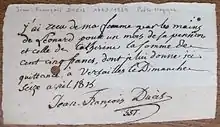 Jean-François DUCIS 1733-1816 Poète tragique
J'ai reçu de ma femme par les mains
de Léonard pour un mois de sa pension
et celle de Catherine la somme de
cent cinq francs, dont je lui donne ici
quittance, à Versailles le Dimanche
Seize avril 1815
Jean-François Ducis